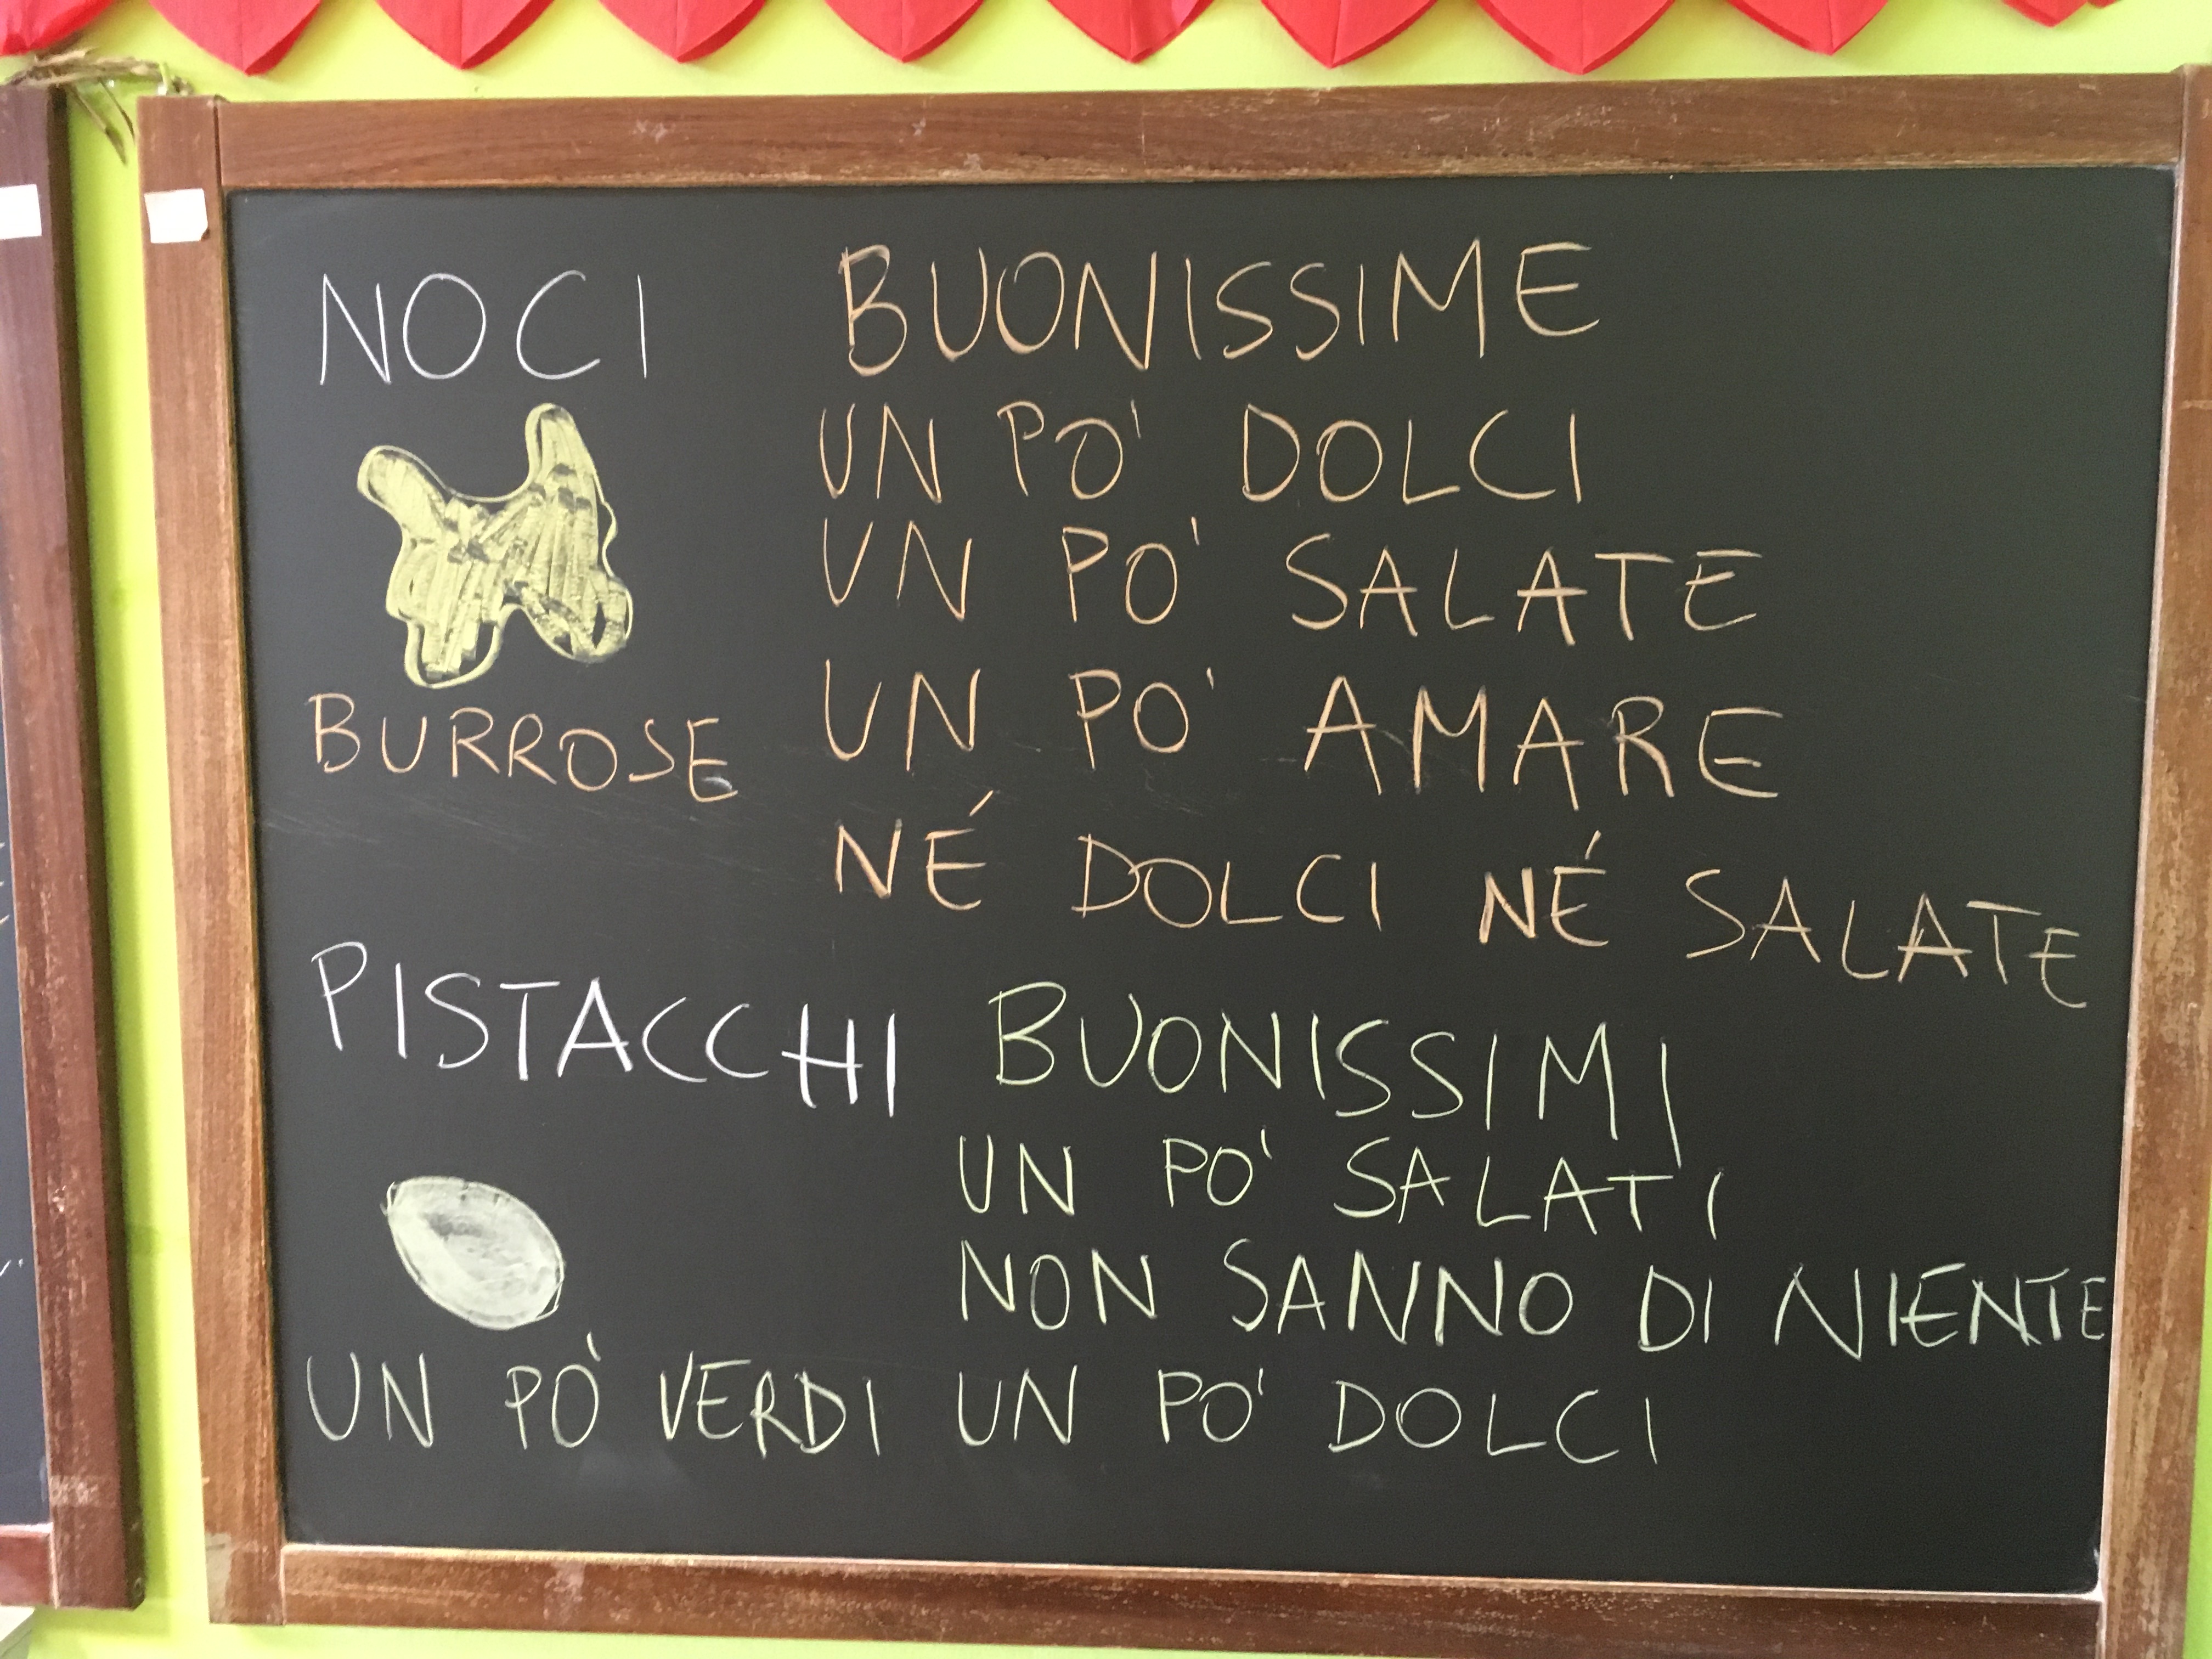 NOCI BUONISSIME
UN PO' DOLCI
UN PO' SALATE
BURROSE UN PO' AMARE
NÉ DOLCI NÉ SALATE
PISTACCHI BUONISSIMI
UN PO' SALATI
NON SANNO DI NIENTE
UN PO' VERDI UN PO' DOLCI